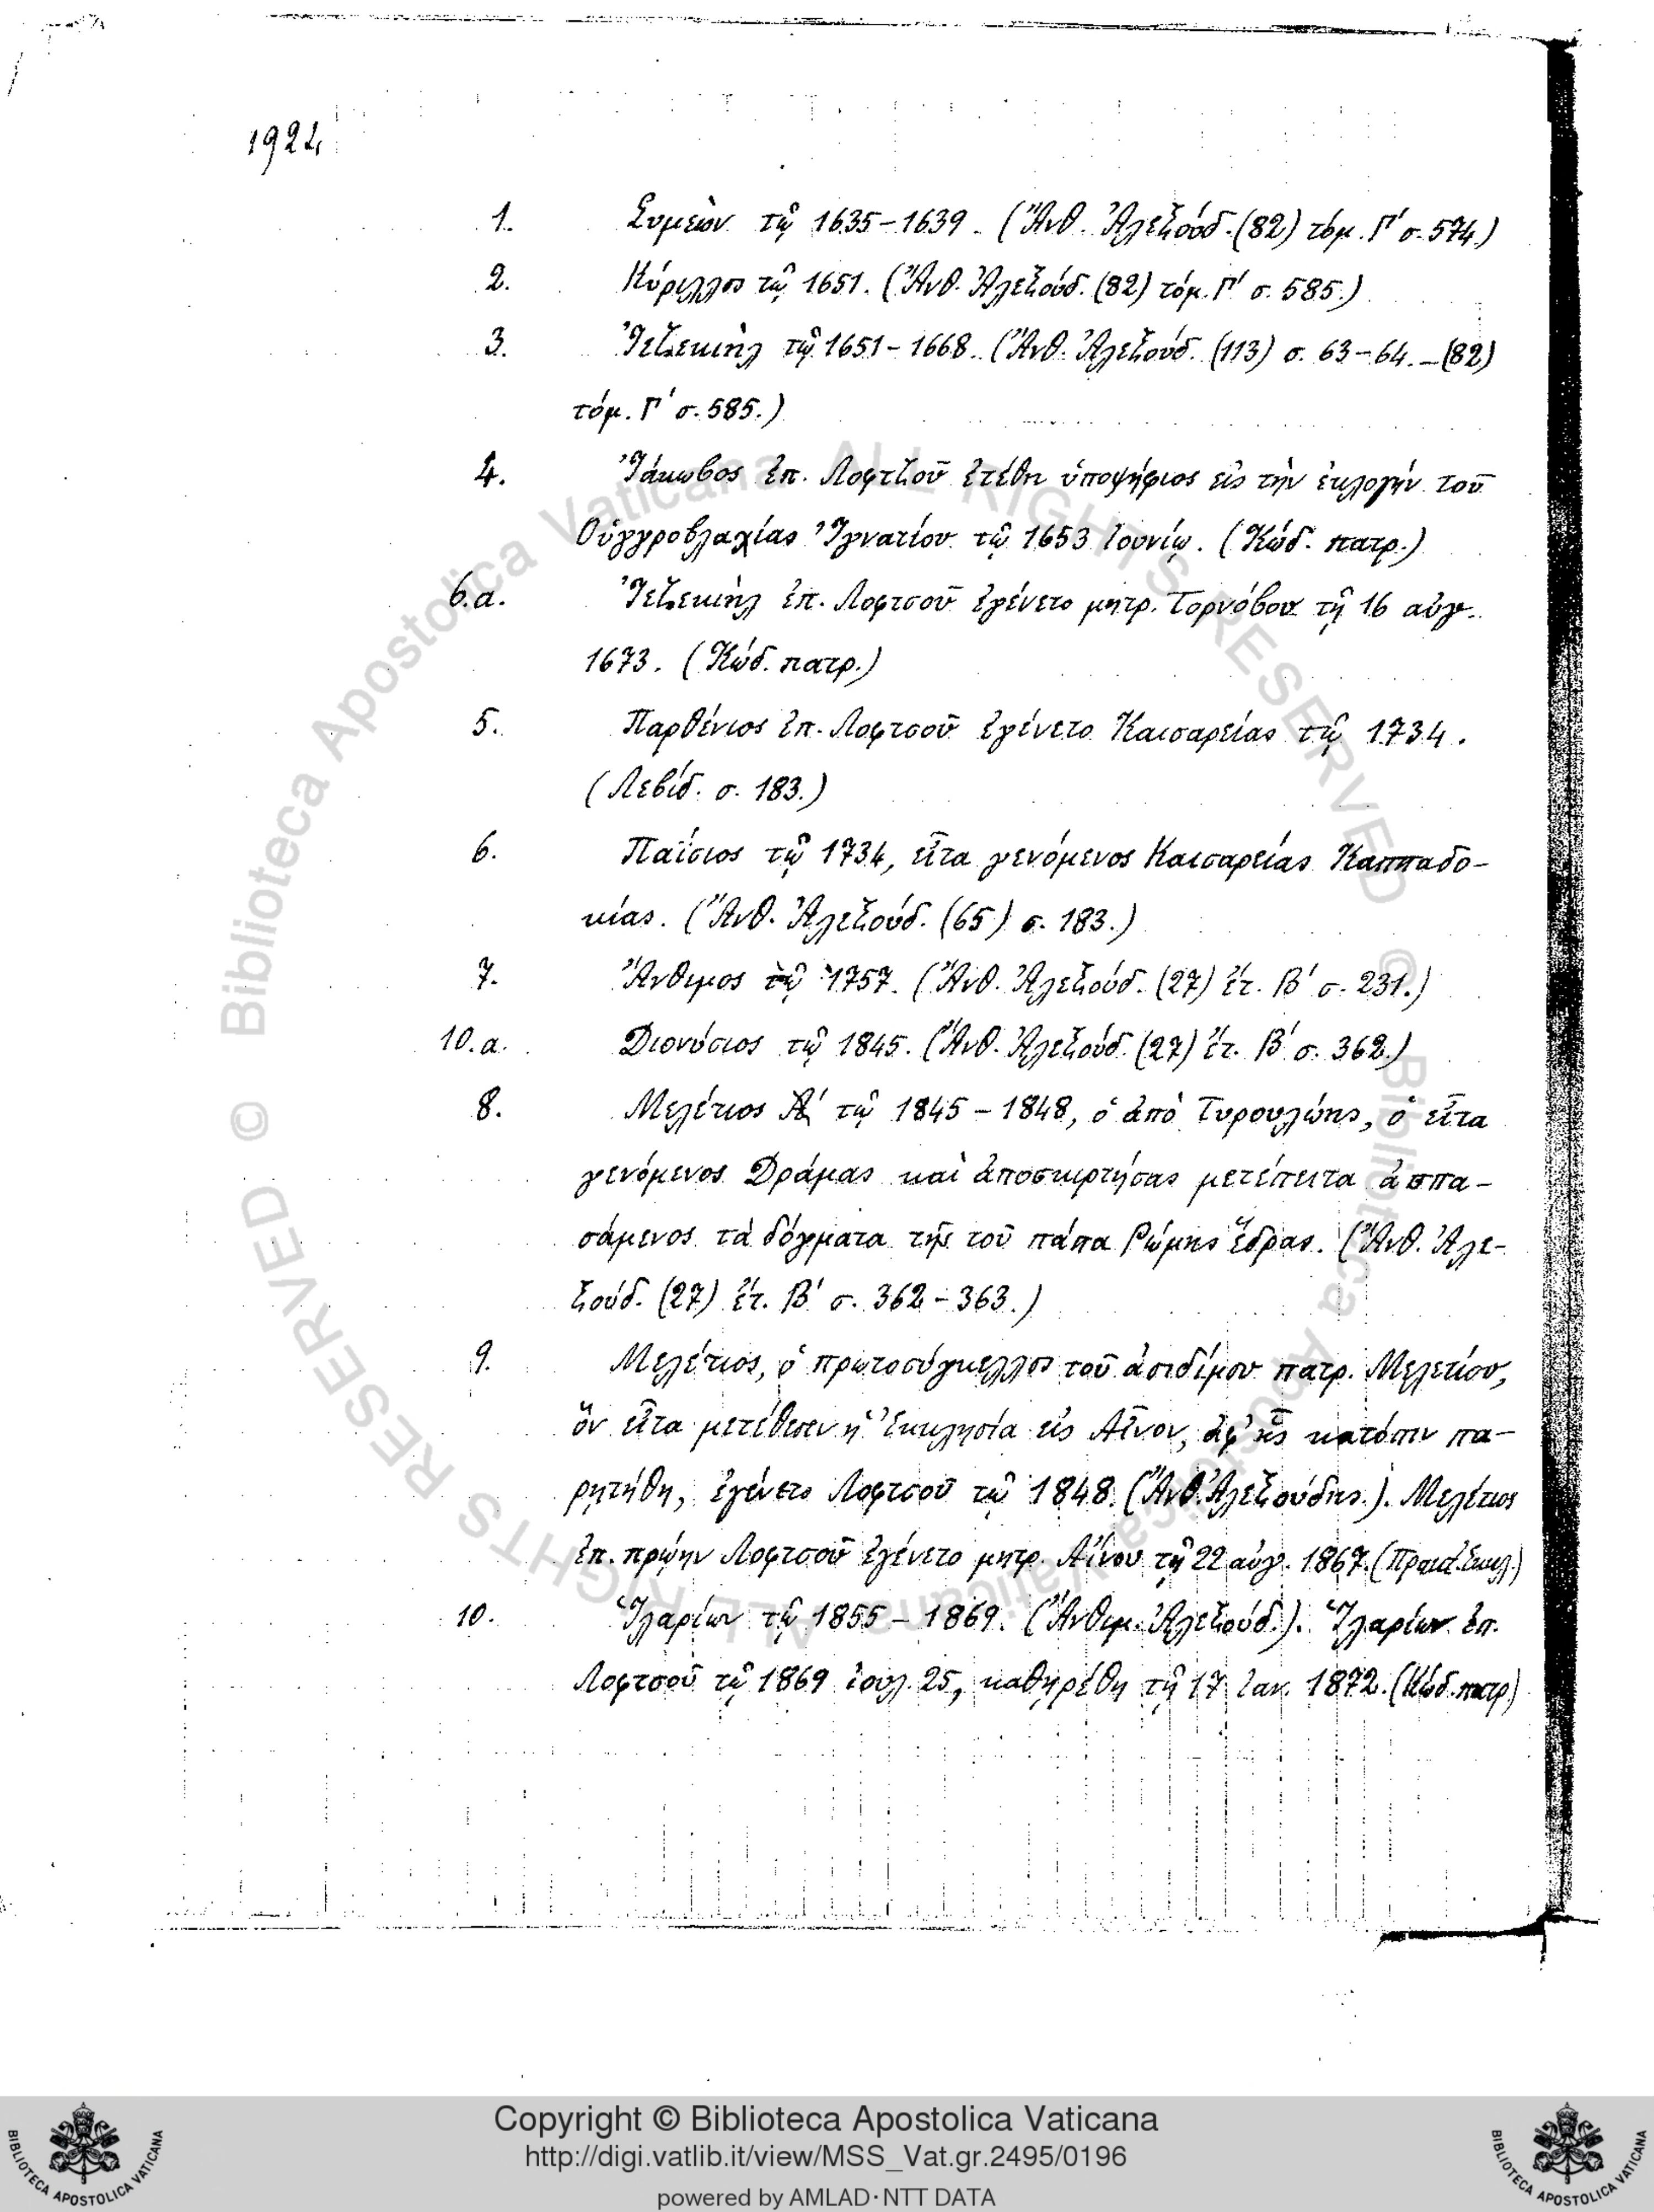 1924
1. Συμεὼν τῷ 1635-1639. (Ἄνθ. Ἀλεξούδ. (82) τόμ. Γ' σ. 574.)
2. Κύριλλος τῷ 1651. (Ἄνθ. Ἀλεξούδ. (82) τόμ. Γ' σ. 585.)
3. Ἰεζεκιὴλ τῷ 1651-1668. (Ἄνθ. Ἀλεξούδ. (113) σ. 63-64. - (82)
τόμ. Γ' σ. 585.)
4. Ἰάκωβος ἐπ. Λοφτζοῦ ἐτέθη ὑποψήφιος εἰς τὴν ἐκλογήν τοῦ
Οὑγγροβλαχίας Ἰγνατίου τῷ 1653 Ιουνίῳ. (Κώδ. πατρ.)
6.α. Ἰεζεκιὴλ ἐπ. Λοφτσοῦ ἐγένετο μητρ. Τορνόβου τῇ 16 αὐγ.
1673. (Κώδ. πατρ.)
5. Παρθένιος ἐπ. Λοφτσοῦ ἐγένετο Καισαρείας τῷ 1734.
(Λεβίδ. σ. 183.)
6. Παΐσιος τῷ 1734, εἶτα γενόμενος Καισαρείας Καππαδο-
κίας. (Ἄνθ. Ἀλεξούδ. (65) σ. 183.)
7. Ἄνθιμος τῷ 1757. (Ἄνθ. Ἀλεξούδ. (27) ἔτ. Β' σ. 231.)
10.α. Διονύσιος τῷ 1845. (Ἄνθ. Ἀλεξούδ. (27) ἔτ. Β' σ. 362.)
8. Μελέτιος Α' τῷ 1845-1848, ὁ ἀπὸ Τυρουλώης, ὁ εἶτα
γενόμενος Δράμας καὶ ἀποσκιρτήσας μετέπειτα ἀσπα-
σάμενος τὰ δόγματα τῆς τοῦ πάπα Ρώμης ἕδρας. (Ἄνθ. Ἀλε-
ξούδ. (27) ἔτ. Β' σ. 362-363.)
9. Μελέτιος, ὁ πρωτοσύγκελλος τοῦ ἀοιδίμου πατρ. Μελετίου,
ὃν εἶτα μετέθεσεν ἡ Ἐκκλησία εἰς Αἶνον, ἀφ' ἧς κατόπιν πα-
ρητήθη, ἐγένετο Λοφτσοῦ τῷ 1848. (Ἄνθ. Ἀλεξούδης.). Μελέτιος
ἐπ. πρώην Λοφτσοῦ ἐγένετο μητρ. Αἴνου τῇ 22 αὐγ. 1867. (Πρακτ. Ἐκκλ.)
10. Ἱλαρίων τῷ 1855-1869. (Ἄνθιμ. Ἀλεξούδ.). Ἱλαρίων ἐπ.
Λοφτσοῦ τῷ 1869 ἰουλ. 25, καθῃρέθη τῇ 17 Ιαν. 1872. (Κώδ. πατρ.)
© Biblioteca Apostolica Vaticana ALL RIGHTS RESERVED © Biblioteca Apostolica Vaticana ALL RIGHTS RESERVED
Copyright © Biblioteca Apostolica Vaticana
http://digi.vatlib.it/view/MSS_Vat.gr.2495/0196
powered by AMLAD·NTT DATA
BIBLIOTECA APOSTOLICA VATICANA
BIBLIOTECA APOSTOLICA VATICANA